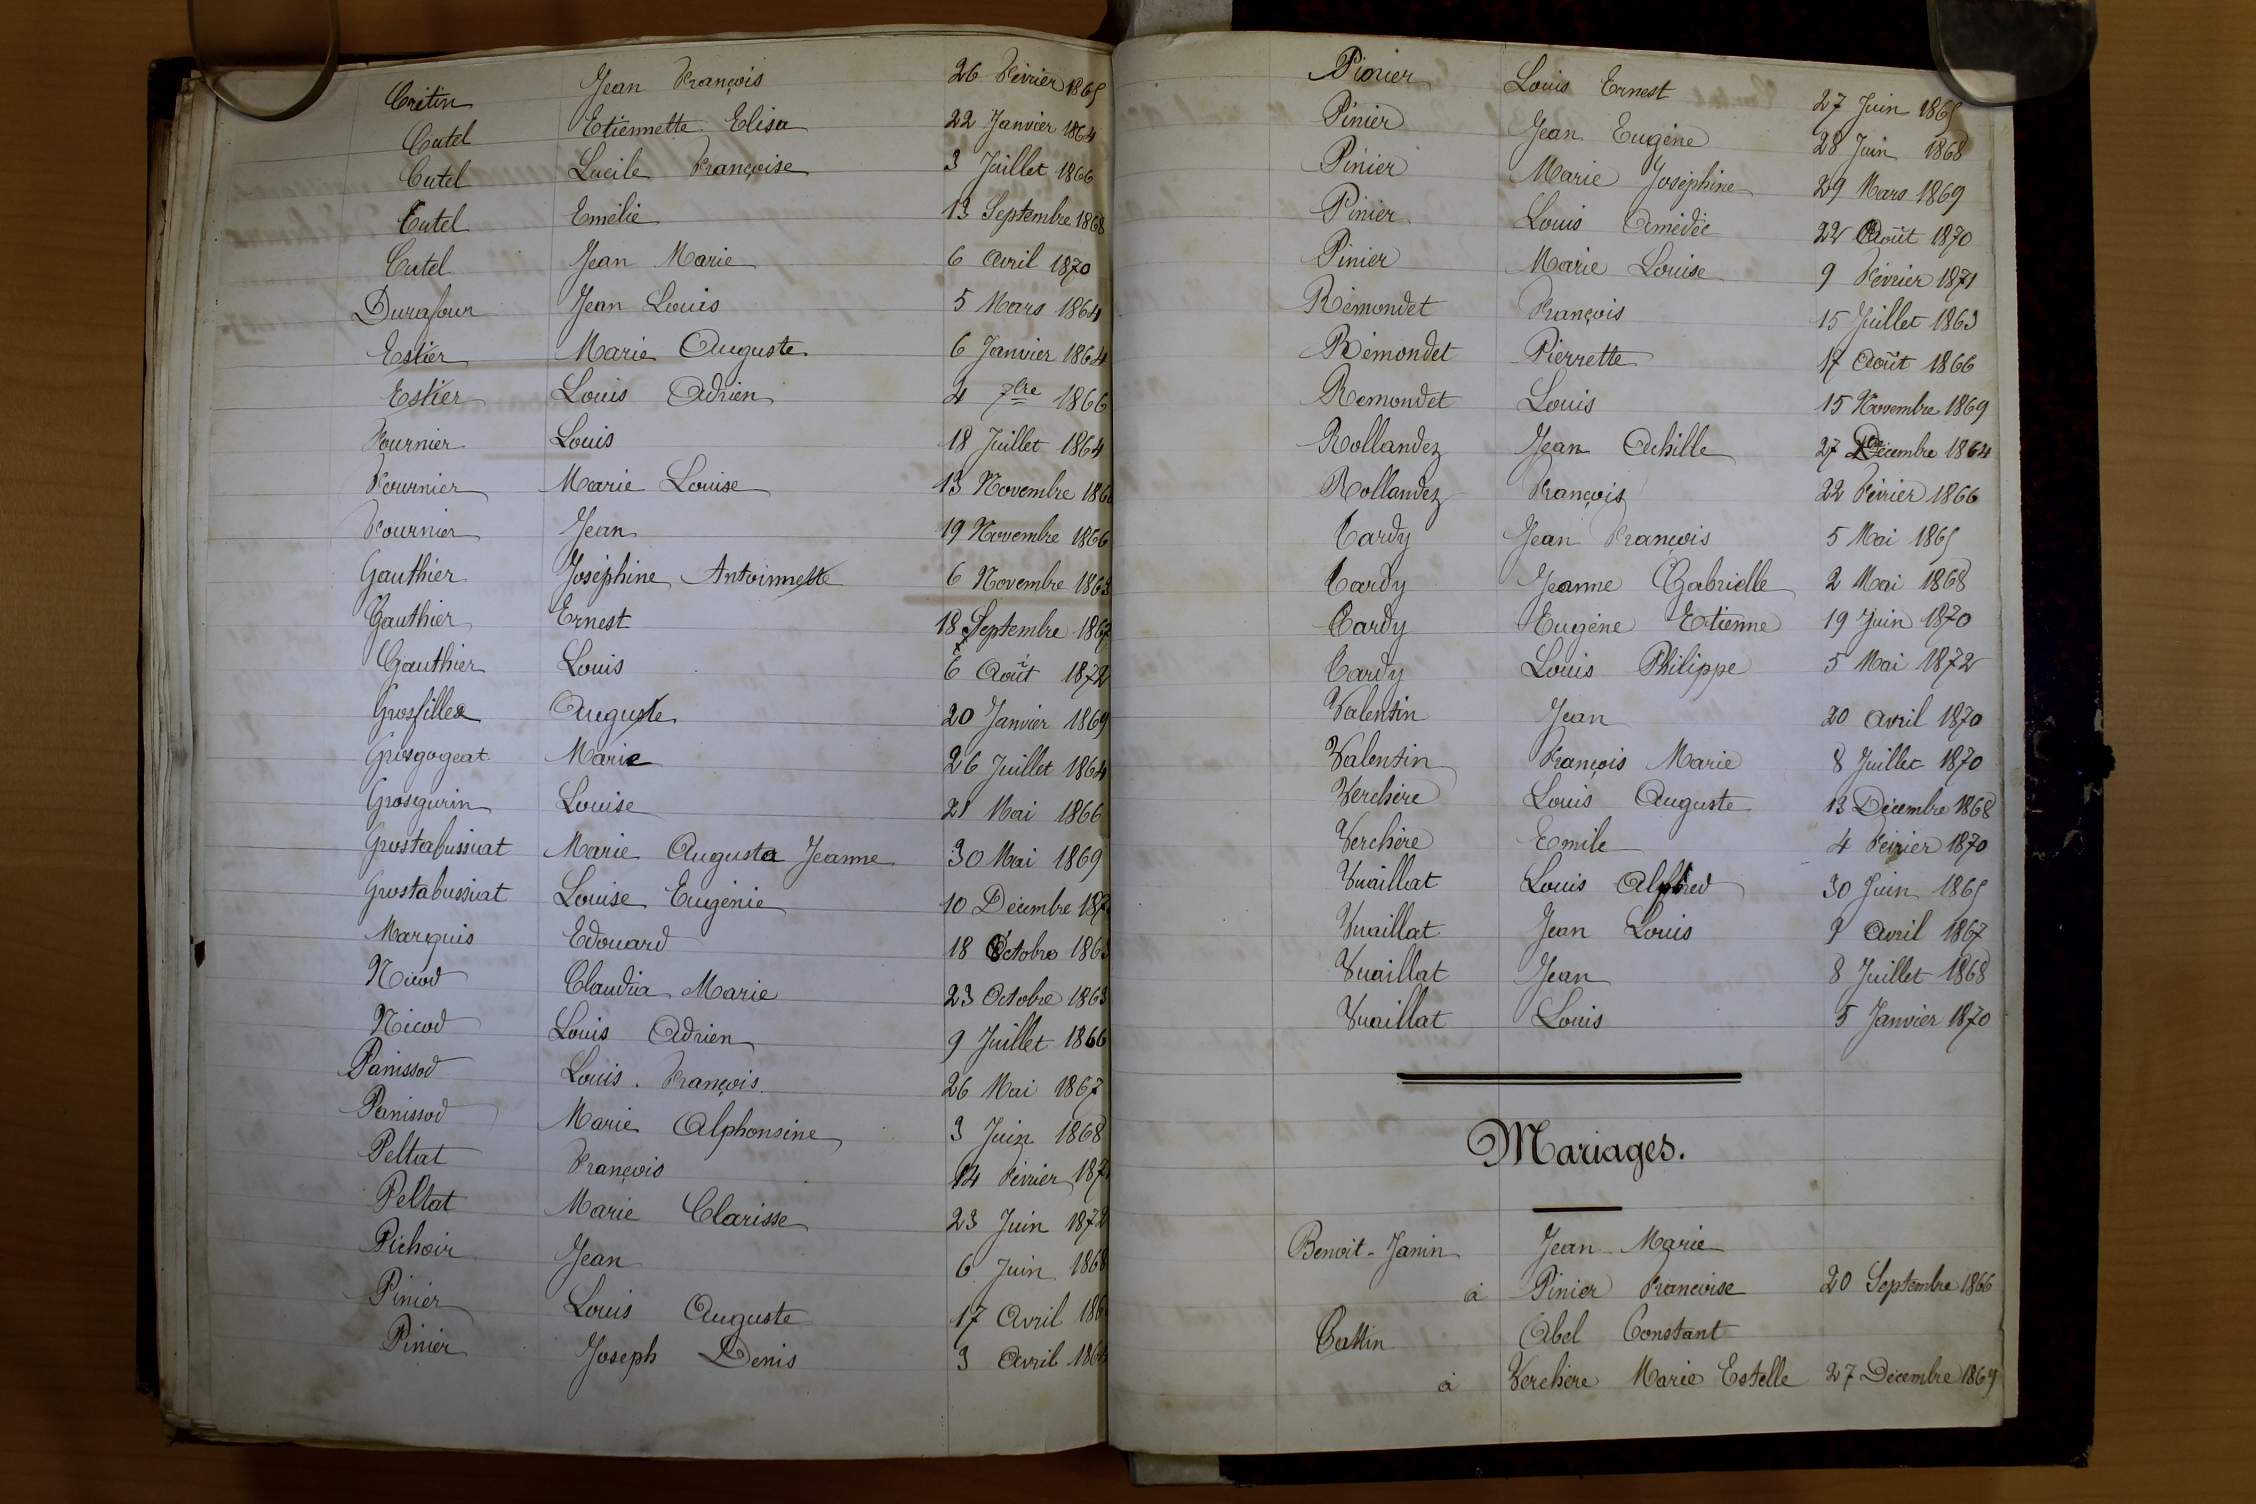 Critin Jean François 26 Février 1865
Cutel Etiennette Elisa 22 Janvier 1864
Cutel Lucile Françoise 3 Juillet 1866
Cutel Emélie 13 Septembre 1868
Cutel Jean Marie 6 Avril 1870
Durafour Jean Louis 5 Mars 1864
Estier Marie Auguste 6 Janvier 1864
Estier Louis Adrien 4 7bre 1866
Fournier Louis 18 Juillet 1864
Fournier Marie Louise 13 Novembre
Fournier Jean 19 Novembre 1866
Gauthier Joséphine Antoinnette 6 Novembre 1863
Gauthier Ernest 18 Septembre 1867
Gauthier Louis 6 Août 1872
Grosfillex Auguste 20 Janvier 1869
Grosgogeat Marie 26 Juillet 1864
Grosgurin Louise 21 Mai 1866
Grostabussiat Marie Augusta Jeanne 30 Mai 1869
Grostabussiat Louise Eugénie 10 Décembre
Marquis Edouard 18 Octobre 1863
Nicod Claudia Marie 23 Octobre 1863
Nicod Louis Adrien 9 Juillet 1866
Panissod Louis François 26 Mai 1867
Panissod Marie Alphonsine 3 Juin 1868
Peltat François 14 Février
Peltat Marie Clarisse 23 Juin 1872
Pichoir Jean 6 Juin 1868
Pinier Louis Auguste 17 Avril
Pinier Joseph Denis 3 Avril 1864
Pinier Louis Ernest 27 Juin 1865
Pinier Jean Eugène 28 Juin 1868
Pinier Marie Joséphine 29 Mars 1869
Pinier Louis Amédée 22 Août 1870
Pinier Marie Louise 9 Février 1871
Rémondet François 15 Juillet 1863
Rémondet Pierrette 17 Août 1866
Remondet Louis 15 Novembre 1869
Rollandez Jean Achille 27 Décembre 1864
Rollandez François 22 Février 1866
Tardy Jean François 5 Mai 1865
Tardy Jeanne Gabrielle 2 Mai 1868
Tardy Eugène Etienne 19 Juin 1870
Tardy Louis Philippe 5 Mai 1872
Valentin Jean 20 Avril 1870
Valentin François Marie 8 Juillet 1870
Verchère Louis Auguste 13 Décembre 1868
Verchère Emile 4 Février 1870
Vuaillat Louis Alfred 30 Juin 1865
Vuaillat Jean Louis 9 Avril 1867
Vuaillat Jean 8 Juillet 1868
Vuaillat Louis 5 Janvier 1870
Mariages.
Benoit-Janin Jean Marie
à Pinier Françoise 20 Septembre 1866
Cattin Abel Constant
à Verchère Marie Estelle 27 Décembre 1869